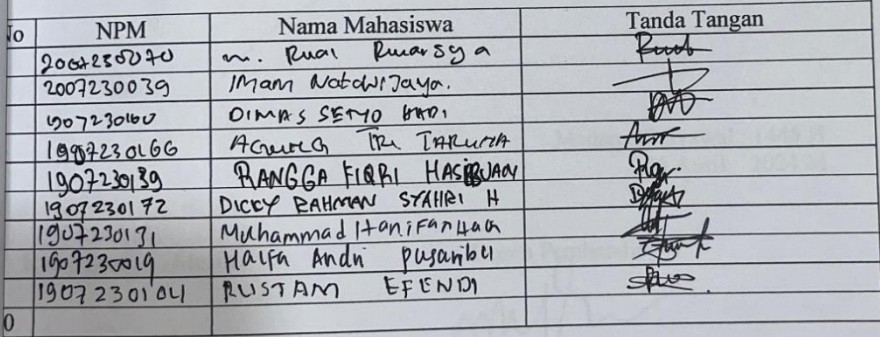 No NPM Nama Mahasiswa Tanda Tangan
2007230070 M. Rual
2007230039 Imam Natawijaya.
1907230160 DIMAS SETYO HADI
1907230166 AGUNG TRI TARUMA
1907230139 RANGGA FIQRI HASIBUAN
1907230172 DICKY RAHMAN SYAHRI H
1907230131 Muhammad Hanifan
1907230019 Haifa Andri Pasaribu
1907230104 RUSTAM EFENDI
0